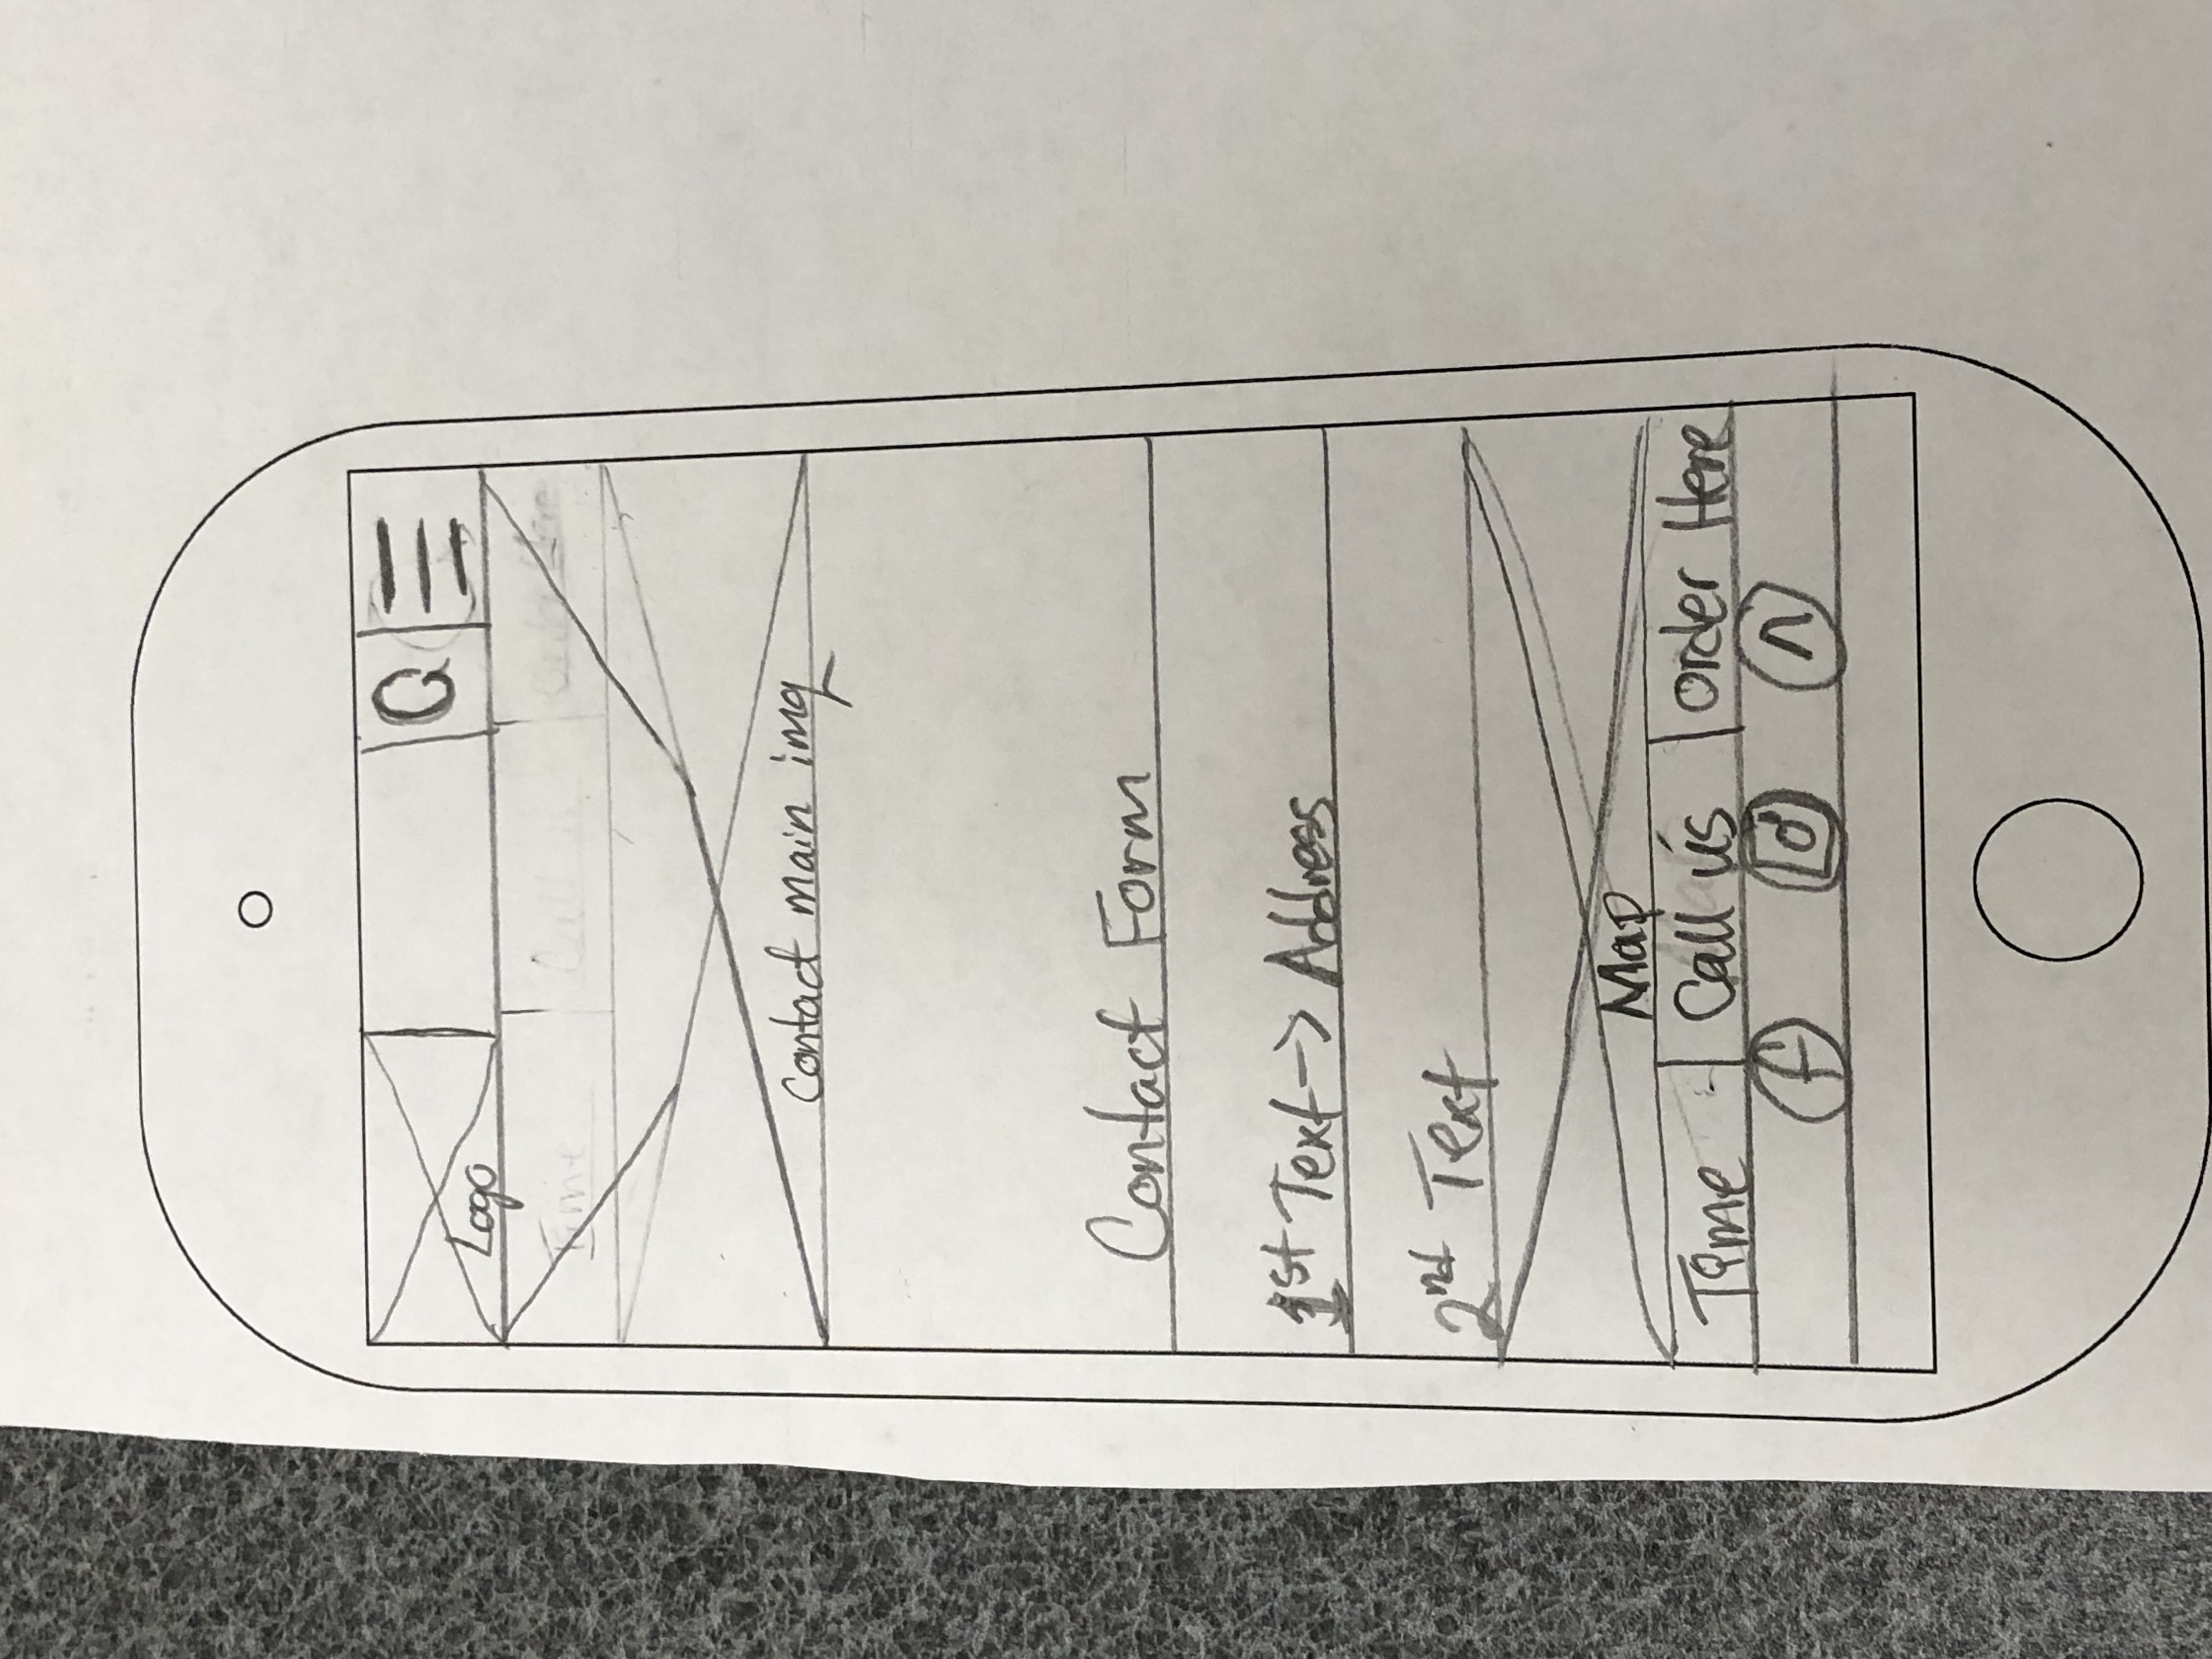 Logo
Time Call us Order Here
Contact main img
Contact Form
1st Text -> Address
2nd Text
Map
Time Call us Order Here
f